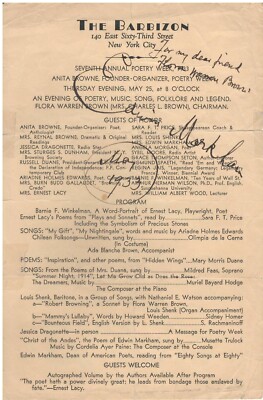 THE BARBIZON
140 East Sixty-Third Street
New York City
For my dear friend
Flora Warren Brown
SEVENTH ANNUAL POETRY WEEK
ANITA BROWNE, FOUNDER-ORGANIZER, POETRY WEEK
THURSDAY EVENING, MAY 25, at 8 O'CLOCK
AN EVENING OF POETRY, MUSIC, SONG, FOLKLORE AND LEGEND.
FLORA WARREN BROWN (MRS. CHARLES L. BROWN), CHAIRMAN.
GUESTS OF HONOR
ANITA BROWNE, Founder-Organizer, Coach & Anthologist
MRS. REYNAL BROWNE, Dramatic Readings
JESSICA DRAGONETTE, Radio
MRS. STURGES S. DUNHAM,
EDWARD DAVISON, Poet
RUSSELL DUANE, President
ARIADNE HOLMES EDWARDS,
MRS. BURN BUDD GALLAUDET,
MRS. ERNEST LACY
SARA F. T. PRICE
SYBIL MOORE, Radio Artist
GRACE THOMPSON SETON, Author
WINNIE LYNCH ROCKETT,
ANNE TUNKELMAN, "Ten Years of Wall St.
MRS. HERMAN WILSON, Prof. Eng.
MRS. WILLIAM ALBERT WOOD,
Edwin Markham
May
1933
PROGRAM
Bernis F. Winkelman, A Word-Portrait of Ernest Lacy, Playwright, Poet
Ernest Lacy's Poems from "Plays and Sonnets", read by Sara F. T. Price
Including Our Precious Stones
SONGS: "My Gift", "My Nightingale", words and music by Ariadne Holmes Edwards
Chilean Folksongs—Unwritten, sung by Olimpio de la Cerne
(In Costume)
Ada Blanche Brown, Accompanist
POEMS: "Inspiration", and other poems, from "Hidden Wings" Mary Morris Duane
SONGS: From the Poems of Mrs. Duane, sung by Mildred Faas, Soprano
"Summer Night, 1914", Let Me Grow Old as Does the Rose:
The Dreamers, Music by Muriel Bayard Hodge
The Composer at the Piano
Louis Shenk, Baritone, in a Group of Songs, with Nathaniel E. Watson accompanying
a "Robert Browning", a Sonnet by Flora Warren Brown.
Louis Shenk (Organ Accompaniment)
b "Mammy's Lullaby" Words by Howard Weeden Sidney Homer
c "Bounteous Field", English Version by L. Shenk S. Rachmaninoff
Jessica Dragonette—in person A Message for Poetry Week
"Christ of the Andes", the Poem of Edwin Markham, sung by Musetta Trulock
Music by Cordelia Ayer Paine: The Composer at the Piano
Edwin Markham, Dean of American Poets, reading from "Eighty Songs at Eighty"
GUESTS WELCOME
Autographed Volume by the Authors Available After Program
"The poet hath a power divinely great; he leads from bondage those enslaved by
fate."—Ernest Lacy.